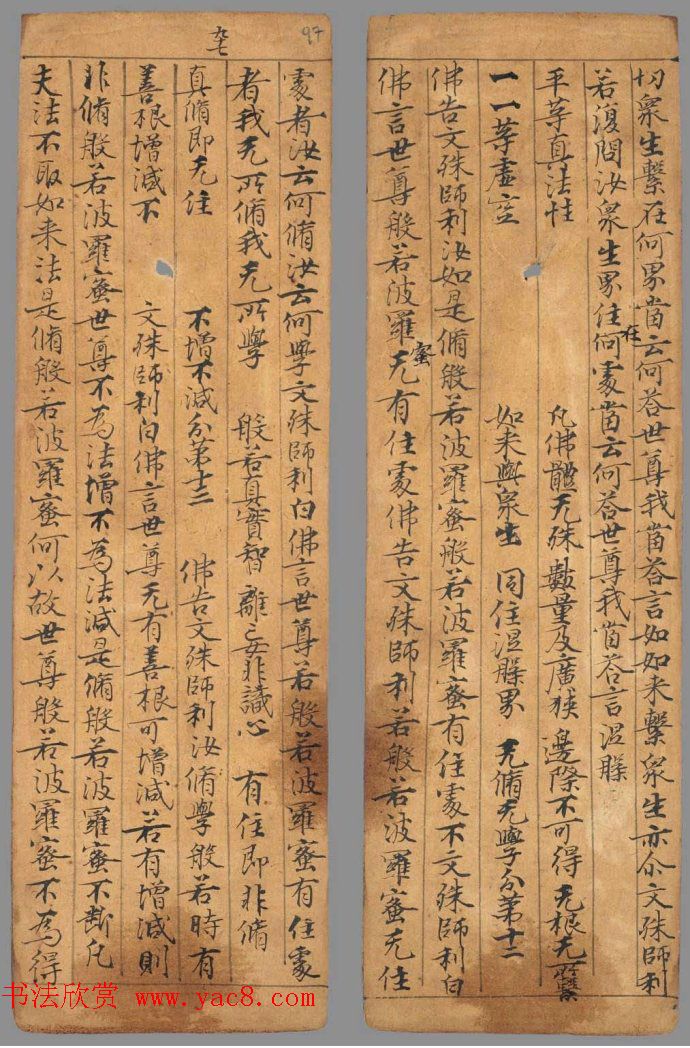 切衆生繫在何界當云何荅世尊我當荅言如如来繫衆生亦尒文殊師利
若復問汝衆生界住在何處當云何荅世尊我當荅言涅槃
平等真法性 凡佛體无殊 數量及廣狹 邊際不可得 无根无所繫
一一等虛空 如来與衆生 同住涅槃界 无脩无學分第十二
佛告文殊師利汝如是脩般若波羅蜜般若波羅蜜有住處不文殊師利白
佛言世尊般若波羅蜜无有住處佛告文殊師利若般若波羅蜜无住
九七
97
處者汝云何脩汝云何學文殊師利白佛言世尊若般若波羅蜜有住處
者我无所脩我无所學 般若真實智 離妄非識心 有住即非脩
真脩即无住 不增不減分第十三 佛告文殊師利汝脩學般若時有
善根增減不 文殊師利白佛言世尊无有善根可增減若有增減則
非脩般若波羅蜜世尊不為法增不為法減是脩般若波羅蜜不斷凡
夫法不取如来法是脩般若波羅蜜何以故世尊般若波羅蜜不為得
书法欣赏 www.yac8.com